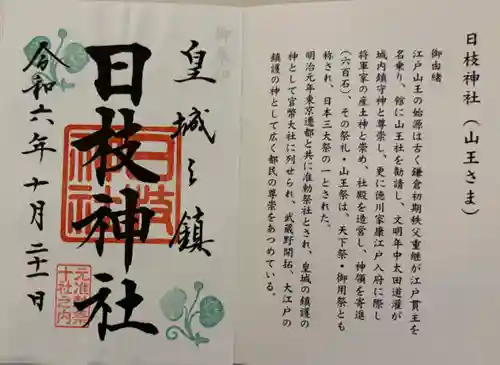 日枝神社(山王さま)
御由緒
江戸山王の始源は古く鎌倉初期秩父重継が江戸貫主を
名乗り、館に山王社を勧請し、文明年中太田道灌が
城内鎮守神と尊崇し、更に徳川家康江戸入府に際し
将軍家の産土神と崇め、社殿を造営し、神領を寄進
(六百石)、その祭礼・山王祭は、天下祭・御用祭とも
称され、日本三大祭の一とされた。
明治元年東京遷都と共に准勅祭社とされ、皇城の鎮護の
神として官幣大社に列せられ、武蔵野開拓、大江戸の
鎮護の神として広く都民の尊崇をあつめている。
皇城之鎮
日枝神社
日枝神社
元准勅祭
十社之内
令和六年十月二十一日